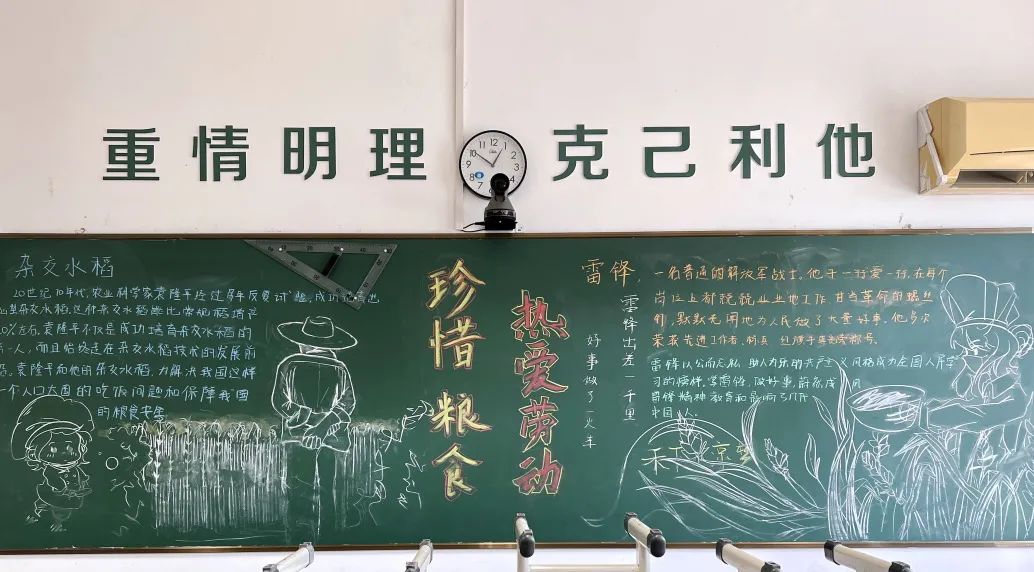 重情明理
克己利他
杂交水稻
20世纪70年代，农业科学家袁隆平经过多年反复试验，成功
杂交水稻，这种杂交水稻比常规稻增产
20%左右，袁隆平不仅是成功培育杂交水稻的
第一人，而且始终走在杂交水稻技术的发展前
袁隆平和他的杂交水稻，为解决我国这样
一个人口大国的吃饭问题和保障我国
的粮食安全
珍惜粮食
热爱劳动
雷锋，
一名普通的解放军战士，他干一行爱一行，在每个
岗位上都兢兢业业地工作，甘当革命的螺丝
钉，默默无闻地为人民做了大量好事。他多次
荣获先进工作者，标兵，红旗手等荣誉称号。
雷锋出差一千里
好事做了一火车
雷锋以公而忘私，助人为乐的共产主义风格成为全国人民学
习的榜样，学雷锋，做好事，蔚然成风
雷锋精神教育和影响了几代
中国人。